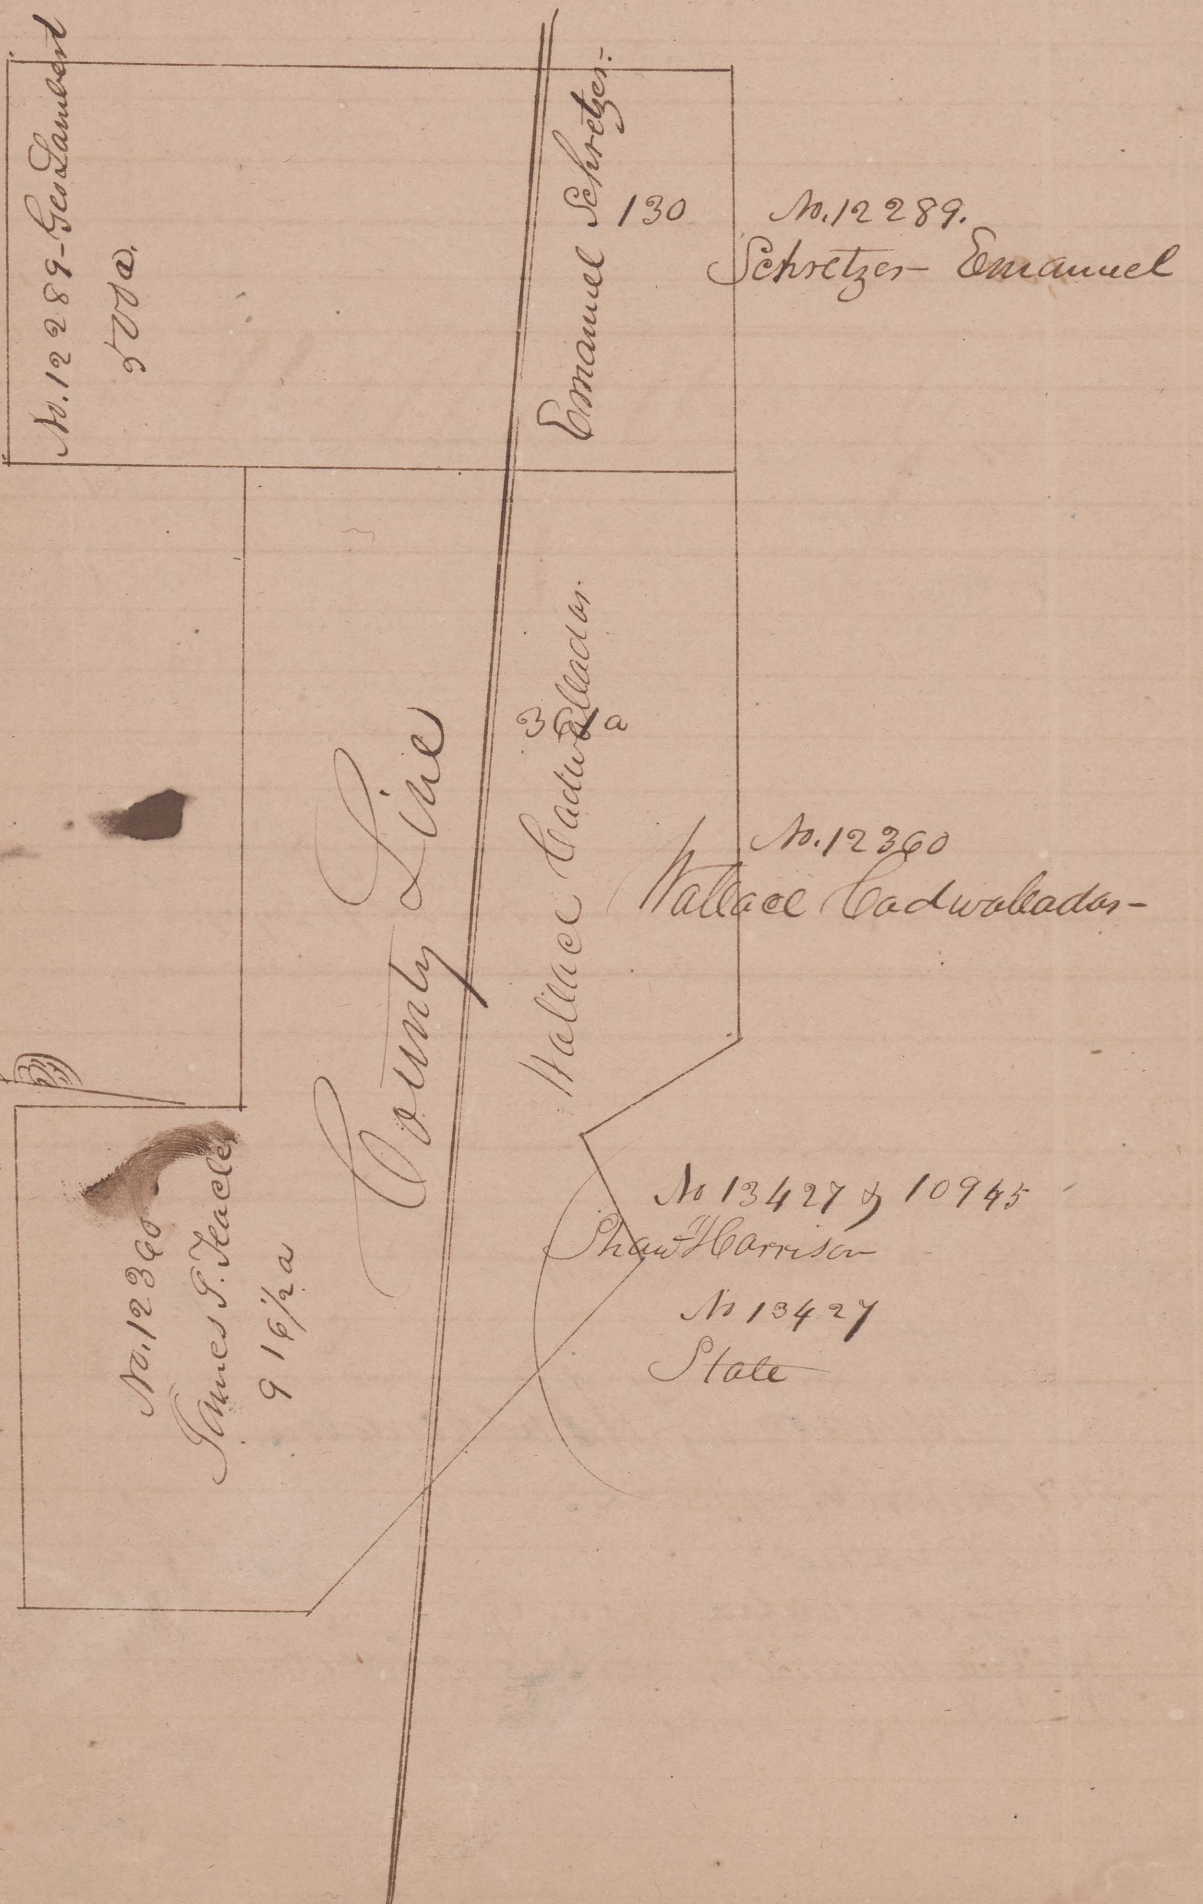 No. 12289 - Geo Lambert
500a.
Emanuel Schretzer.
130
No. 12289.
Schretzer - Emanuel
County Line
Wallace Cadwallader
a
No. 12360
Wallace Cadwallader -
No 13427 & 10945
Shaw Harrison
No 13427
State
No. 12360
James T. Teacle
916 1/2 a